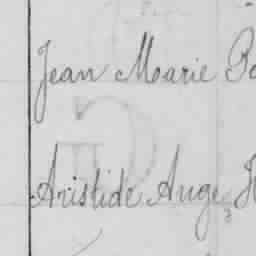 Jean Marie
Aristide Ange